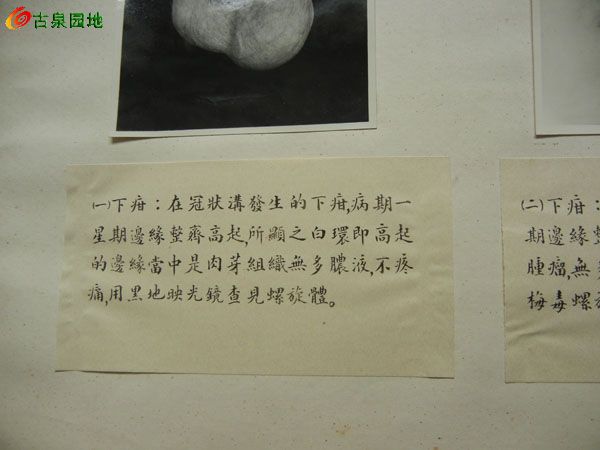 古泉园地
㈠下疳：在冠狀溝發生的下疳,病期一
星期邊緣整齊高起,所顯之白環即高起
的邊緣當中是肉芽組織無多膿液,不疼
痛,用黑地映光鏡查見螺旋體。
㈡下疳：
期邊緣整
腫瘤,無
梅毒螺旋